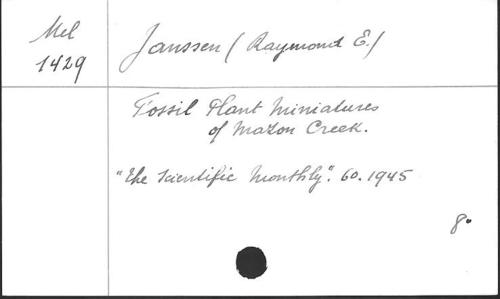 Mel
1429
Janssen (Raymond E.)
Fossil Plant Miniatures
of Mazon Creek.
"The Scientific Monthly". 60. 1945
8°